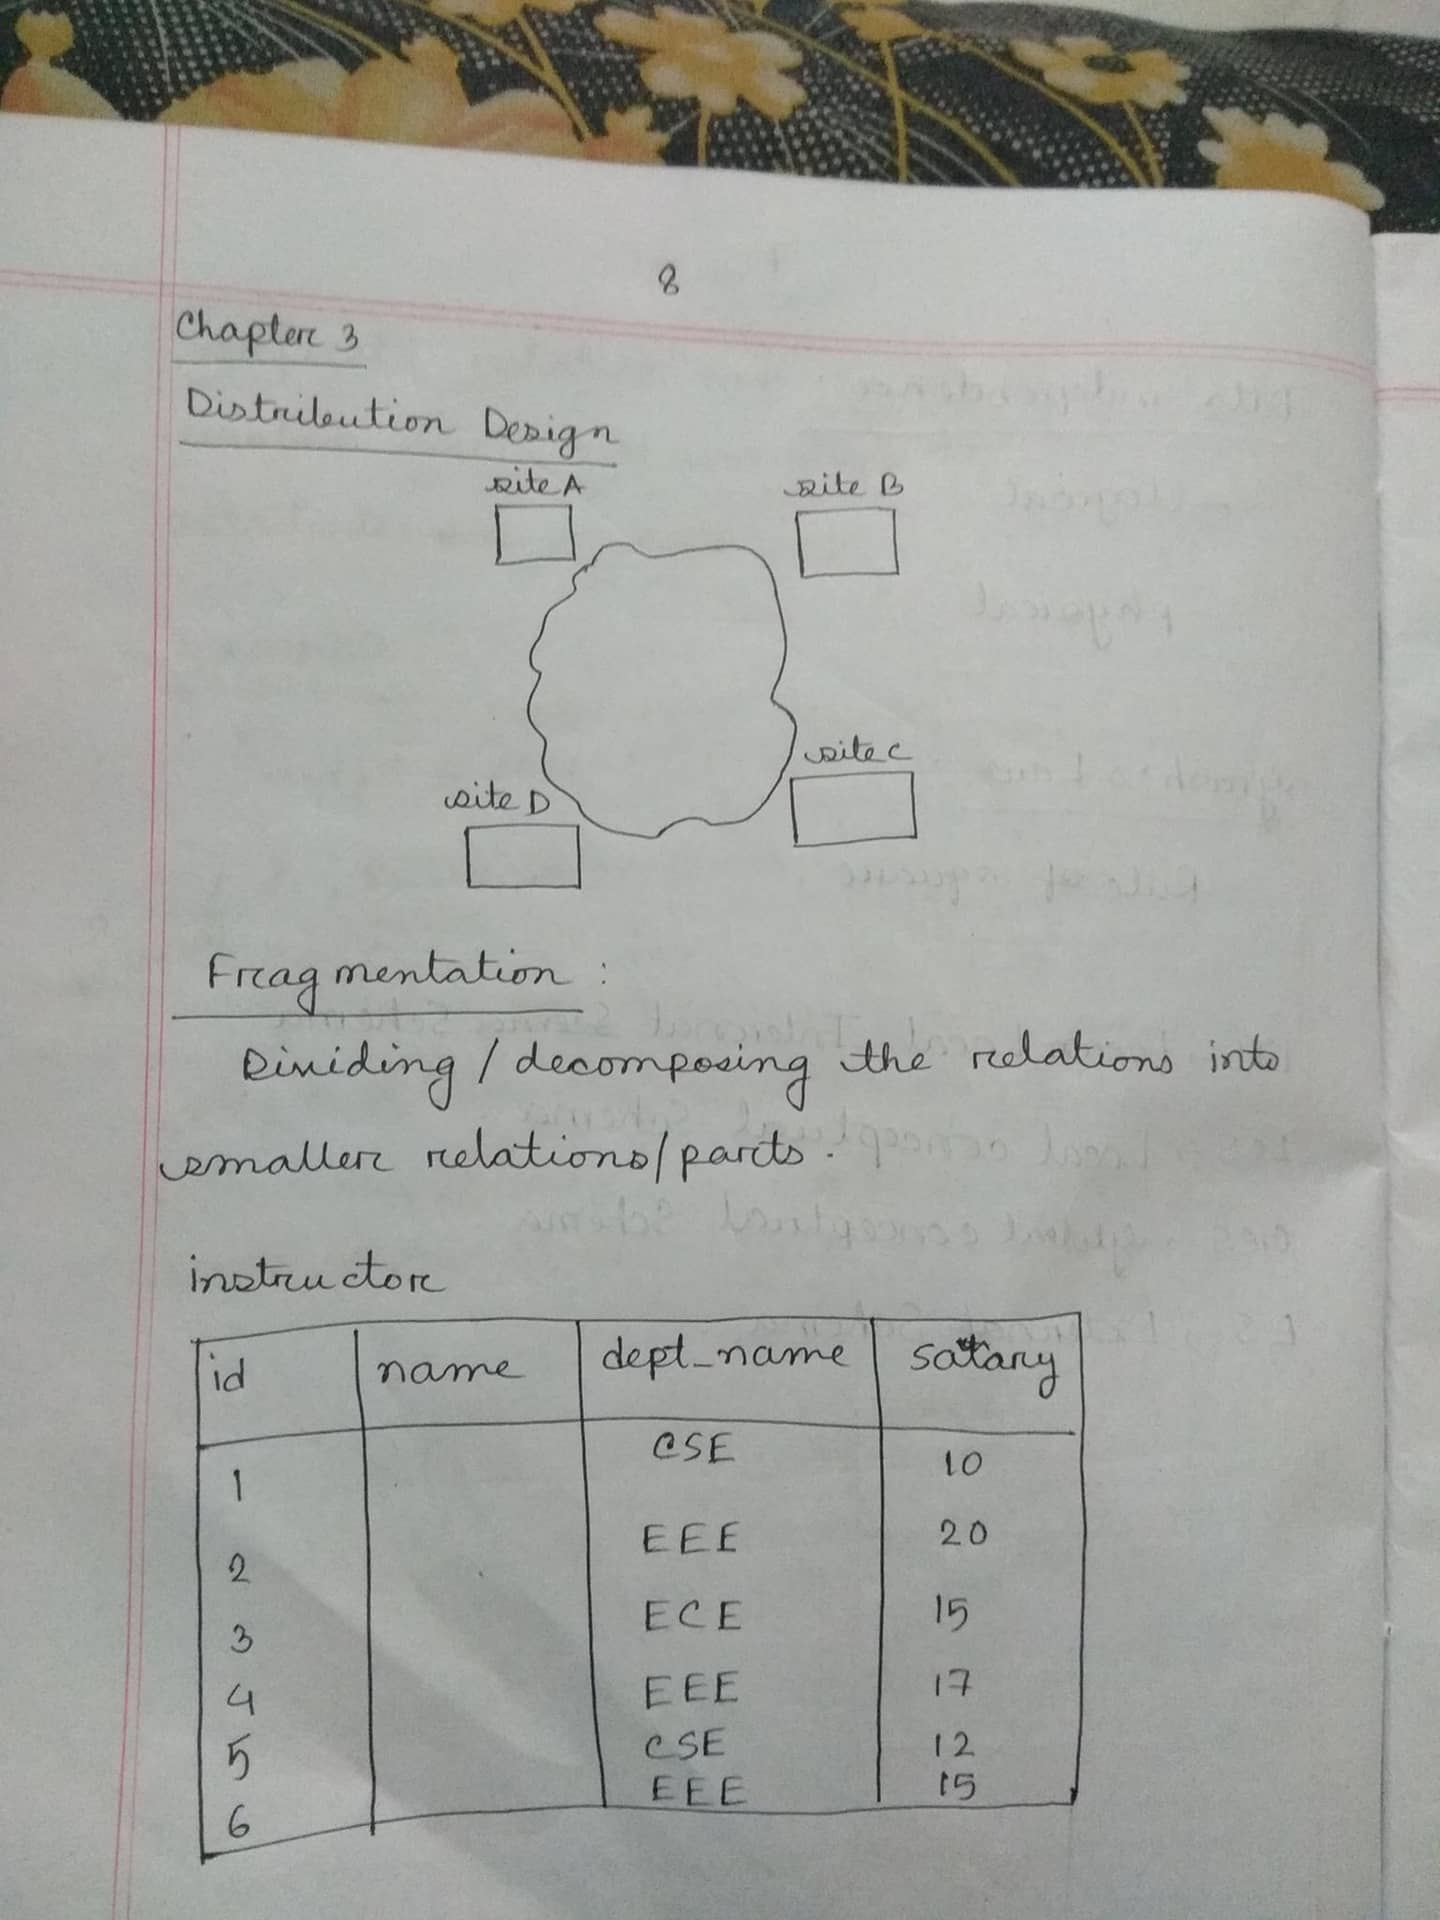 8
Chapter 3
Distribution Design
site A site B
site C
site D
Fragmentation :
Dividing / decomposing the relations into
smaller relations/parts.
instructor
id name dept_name salary
1 CSE 10
2 EEE 20
3 ECE 15
4 EEE 17
5 CSE 12
6 EEE 15